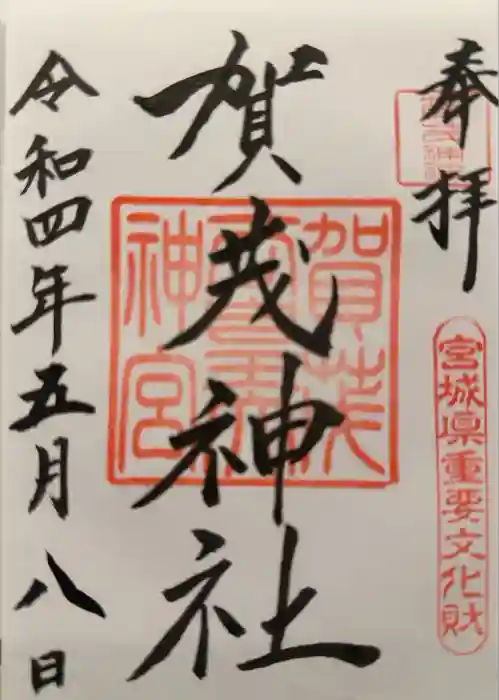 奉拝
宮城県重要文化財
賀茂神社
令和四年五月八日